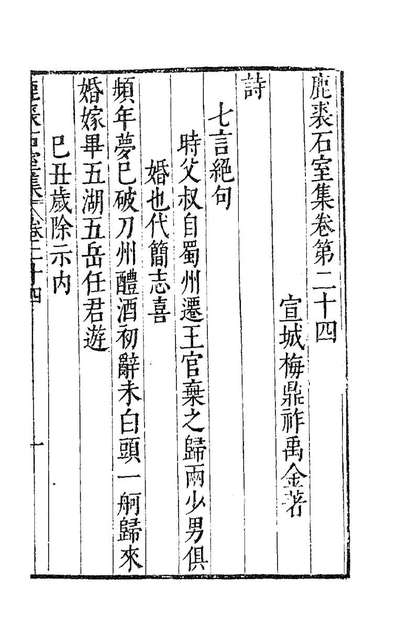 鹿裘石室集卷第二十四
宣城梅鼎祚禹金著
詩
七言絕句
時父叔自蜀州遷王官棄之歸兩少男俱
婚也代簡志喜
頻年夢已破刀州醴酒初辭未白頭一舸歸來
婚嫁畢五湖五岳任君遊
己丑歲除示内
鹿裘石室集卷二十四
一